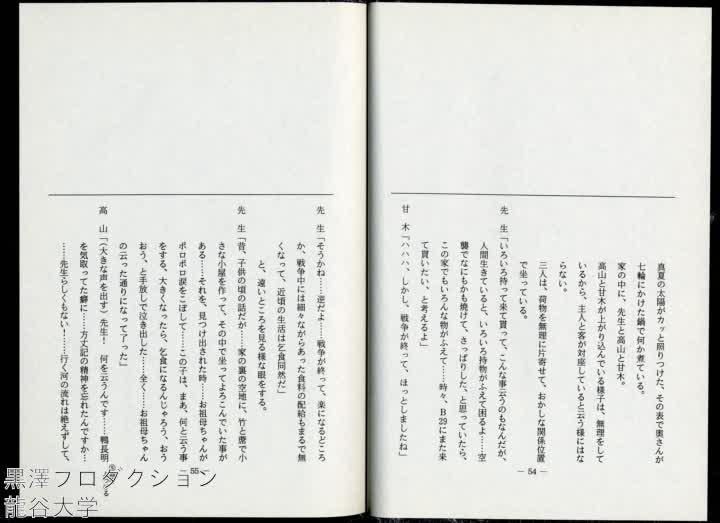 真夏の太陽がカッと照りつけた、その表で奥さんが
七輪にかけた鍋で何か煮ている。
家の中に、先生と高山と甘木。
高山と甘木が上がり込んでいる様子は、無理をして
いるから、主人と客が対座していると云う様にはな
らない。
三人は、荷物を無理に片寄せて、おかしな関係位置
で坐っている。
先　生「いろいろ持って来て貰って、こんな事云うのもなんだが、
人間生きていると、いろいろ持物がふえて困るよ……空
襲でなにもかも焼けて、さっぱりした、と思っていたら、
この家でもいろんな物がふえて……時々、B29にまた来
て貰いたい、と考えるよ」
甘　木「ハハハ、しかし、戦争が終って、ほっとしましたね」
― 54 ―
先　生「そうかね……逆だよ……戦争が終って、楽になるどころ
か、戦争中には細々ながらあった食料の配給もまるで無
くなって、近頃の生活は乞食同然だ」
と、遠いところを見る様な眼をする。
先　生「昔、子供の頃の話だが……家の裏の空地に、竹と蓙で小
さな小屋を作って、その中で坐ってよろこんでいた事が
ある……それを、見つけ出された時……お祖母ちゃんが
ポロポロ涙をこぼして……この子は、まあ、何と云う事
をする、大きくなったら、乞食になるんじゃろう、おう
おう、と手放しで泣き出した……全く……お祖母ちゃん
の云った通りになって了った」
高　山「（大きな声を出す）先生！　何を云うんです……鴨長明
を気取ってた癖に……方丈記の精神を忘れたんですか…
……先生らしくもない！……行く河の流れは絶えずして、
― 55 ―
黒澤プロダクション
龍谷大学